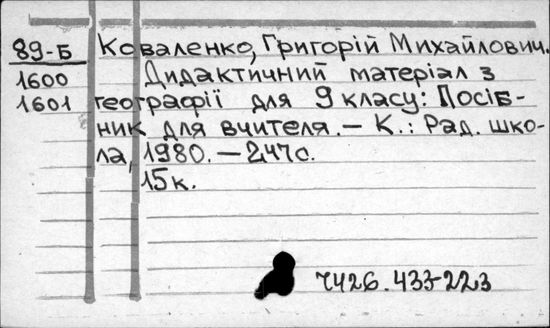 89-Б Коваленко, Григорій Михайлович.
1600 Дидактичний матеріал з
1601 географії для 9 класу: Посіб-
ник для вчителя. – К.: Рад. шко-
ла, 1980. – 247с.
15к.
7426.433-223